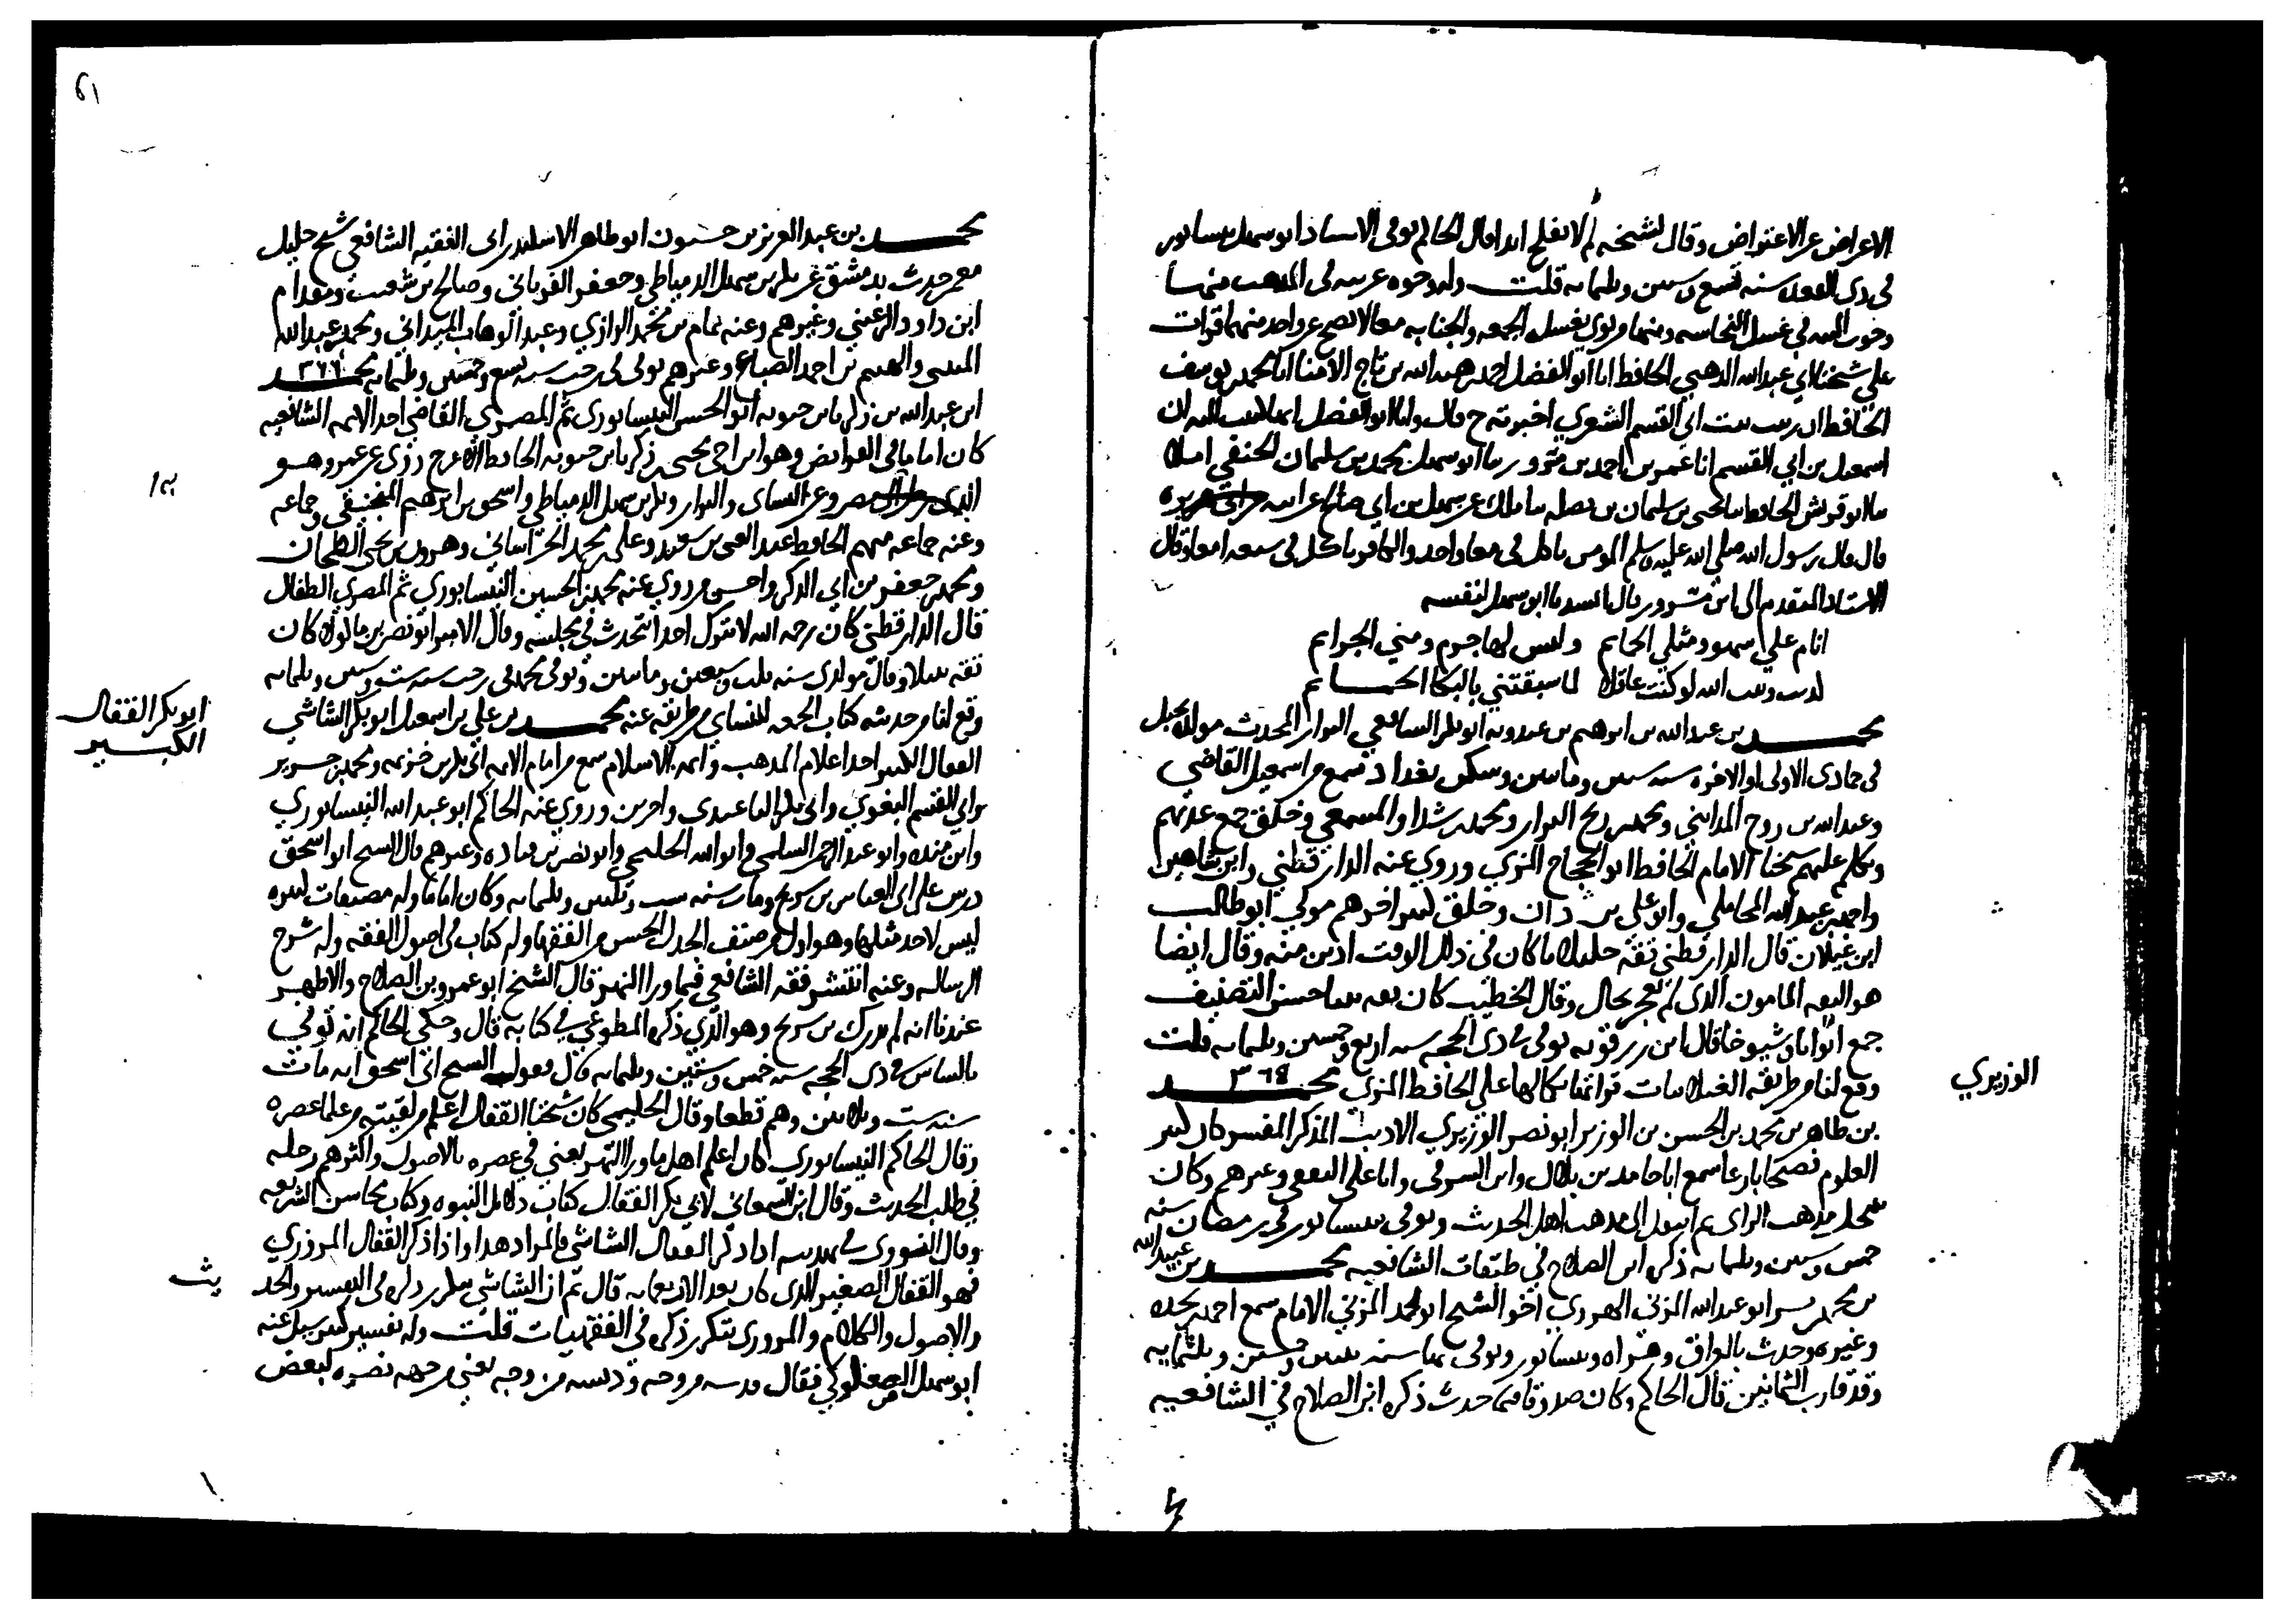 الاعراض عن الاعتراض وقال لشيخه لم لا يفلح ابدا قال الحاكم توفى الاستاذ ابو سهل بنيسابور
فى ذى القعده سنه تسع وستين وثلثمايه قلت وله وجوه غريبه فى المذهب منها
وجوب النيه في غسل النجاسه ومنها من نوى بغسل الجمعه والجنابه معا لا يصح عن واحد منهما قرات
على شيخنا ابي عبد الله الذهبي الحافظ انا ابو الفضل احمد بن هبه الله بن تاج الامنا انا محمد بن يوسف
الحافظ ان زينب بنت ابي القسم الشعري اخبرته ح قال وانا ابو الفضل
اسمعيل بن ابي القسم انا عمر بن احمد بن مسرور ثنا ابو سهل محمد بن سليمان الحنفي املا
ثنا ابو قريش الحافظ ثنا يحيى بن سليمان بن نضله ثنا ملك عن سهيل بن ابي صالح عن ابيه عن ابي هريره
قال قال رسول الله صلى الله عليه وسلم المومن ياكل فى معا واحد والكافر ياكل فى سبعه امعا وقال
الاستاد المتقدم الى ابن مسرور قال انشدنا ابو سهل لنفسه
انام على سهو وتبكي الحمايم وليس لها جرم ومني الجرايم
كذبت وبيت الله لو كنت عاقلا لما سبقتني بالبكا الحمايم
محمد بن عبد الله بن ابرهيم بن عبدويه ابو بكر الشافعي البزاز المحدث مولده بجبل
فى جمادى الاولى او الاخره سنه ستين ومايتين وسكن بغداد سمع من اسمعيل القاضي
وعبد الله بن روح المدايني ومحمد بن ربح البزاز ومحمد بن شداد المسمعي وخلق جمع عدتهم
وتكلم عليهم شيخنا الامام الحافظ ابو الحجاج المزي وروي عنه الدارقطني وابن شاهين
واحمد بن عبد الله المحاملي وابو علي بن شاذان وخلق كثير اخرهم موتي ابو طالب
ابن غيلان قال الدارقطني ثقه جليل ما كان فى ذلك الوقت اوثق منه وقال ايضا
هو الثقه المامون الذى لم يغمز بحال وقال الخطيب كان ثقه ثبتا حسن التصنيف
جمع ابوابا وشيوخا قال ابن رزقويه توفى فى ذى الحجه سنه اربع وخمسين وثلثمايه قلت
وقع لنا من طريقه الغيلانيات قراتها بكمالها على الحافظ المزى ٣٦٤ محمد
بن طاهر بن محمد بن الحسن بن الوزير ابو نصر الوزيري الاديب المذكر المفسر كان كثير
العلوم فصيحا بارعا سمع ابا حامد بن بلال وابن الشرقى وابا على الثقفى وغيرهم وكان
ينتحل مذهب الراى ثم انتقل الى مذهب اهل الحديث وتوفى بنيسابور فى رمضان سنه
خمس وستين وثلثمايه ذكره ابن الصلاح في طبقات الشافعيه محمد بن عبيد الله
بن محمد بن بشر ابو عبد الله المزنى الهروي اخو الشيخ ابو محمد المزني الامام سمع احمد بن نجده
وغيره وحدث بالعراق وهراه ونيسابور وتوفى بها سنه وخمسين وثلثمايه
وقد قارب الثمانين قال الحاكم وكان صدوقا فيما حدث ذكره ابن الصلاح في الشافعيه
الوزيري
٦١
محمد بن عبد العزيز بن حسنون ابو طاهر الاسكندراى الفقيه الشافعي شيخ جليل
معمر حدث بدمشق عن بكر بن سهل الدمياطي وجعفر الفريانى وصالح بن شعيب ومقدام
ابن داود الرعيني وغيرهم وعنه تمام بن محمد الرازي وعبد الوهاب الميداني ومحمد بن عبد الله
والهيثم بن احمد الصباغ وغيرهم توفى فى رجب سنه تسع وخمسين وثلثمايه ٣٦٦ محمد
ابن عبد الله بن زكريا بن حيويه ابو الحسن النيسابوري ثم المصري القاضي احد الايمه الشافعيه
كان اماما فى الفرايض وهو ابن اخي يحيى بن زكريا بن حيويه الحافظ الاعرج روى عن عمه وهو
الذى مصر وعن النساى والبزار وبكر بن سهل الدمياطي واسحق بن ابرهيم المنجنيقي وجماعه
وعنه جماعه منهم الحافظ عبد الغنى بن سعيد وعلى بن محمد الخراساني وهرون بن يحيى الطحان
ومحمد بن جعفر بن ابي الذكر واخر من روي عنه محمد بن الحسين النيسابوري ثم المصري الطفال
قال الدارقطنى كان رحمه الله لا يترك احدا يتحدث فى مجلسه وقال الامير ابو نصر بن ماكولا كان
ثقه نبيلا وقال مولدى سنه ثلث وسبعين ومايتين وتوفى محمد فى رجب سنه ست وستين وثلثمايه
وقع لنا من حديثه كتاب الجمعه للنساي من طريقه عنه محمد بن علي بن اسمعيل ابو بكر الشاشي
القفال الكبير احد اعلام المذهب وايمه الاسلام سمع من امام الايمه ابي بكر بن خزيمه ومحمد بن جرير
وابي القسم البغوي وابي بكر الباغندى واخرين وروي عنه الحاكم ابو عبد الله النيسابوري
وابن منده وابو عبد الرحمن السلمي وابو عبد الله الحليمي وابو نصر بن قتاده وغيرهم قال الشيخ ابو اسحق
درس على ابى العباس بن سريج ومات سنه ست وثلثين وثلثمايه وكان اماما وله مصنفات كثيره
ليس لاحد مثلها وهو اول من صنف الجدل الحسن من الفقها وله كتاب فى اصول الفقه وله شرح
الرساله وعنه انتشر فقه الشافعي فيما ورا النهر قال الشيخ ابو عمرو بن الصلاح والاظهر
عندنا انه لم يدرك بن سريج وهو الذي ذكره المطوعي فى كتابه قال وحكى الحاكم انه توفى
بالشاش فى ذى الحجه سنه خمس وستين وثلثمايه قال فقول الشيخ ابى اسحق انه مات
سنه ست وثلاثين وهم قطعا وقال الحليمى كان شيخنا القفال اعلم من لقيته من علما عصره
وقال الحاكم النيسابوري كان اعلم اهل ما ورا النهر يعني في عصره بالاصول واكثرهم رحله
في طلب الحديث وقال ابن السمعاني لابي بكر القفال كتاب دلايل النبوه وكتاب محاسن الشريعه
وقال النووى فى تهذيبه اذا ذكر القفال الشاشي فالمراد هذا واذا ذكر القفال المروزي
فهو القفال الصغير الذى كان بعد الاربعمايه قال ثم ان الشاشي يتكرر ذكره فى التفسير والحد
يث
والاصول والكلام والمروزى يتكرر ذكره فى الفقهيات قلت وله تفسير كبير سيل عنه
ابو سهل الصعلوكي فقال قدسه من وجه ودنسه من وجه يعنى من جهه نصره لبعض
ابو بكر القفال
الكبير